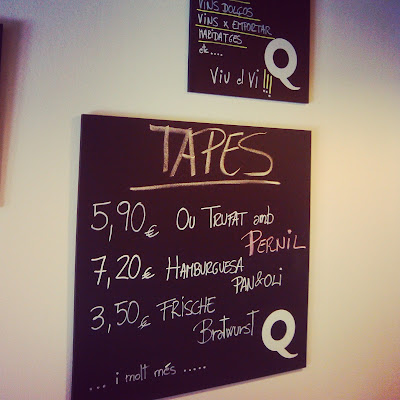 VINS DOLÇOS
VINS X EMPORTAR
HABIDATGES
etc....
Viu el Vi!!!
Q
TAPES
5,90€ OU TRUFAT amb
PERNIL
7,20€ HAMBURGUESA
PAN&OLI
3,50€ FRISCHE
Bratwurst
Q
... i molt més .....